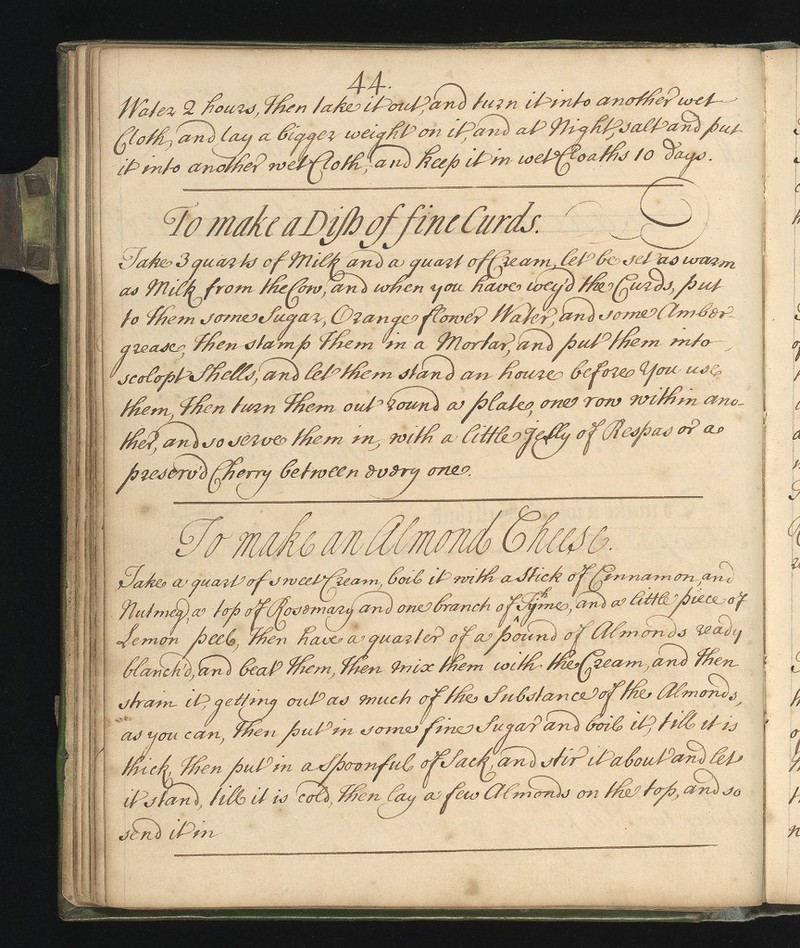 44.
Water 2 hours, Then take it out, and turn it into another wet
Cloth, and lay a bigger weight on it and at Night, salt and put
it into another wet Cloth, and keep it in wet Cloaths 10 Days.
To make a Dish of fine Curds.
Take 3 quarts of Milk and a quart of Cream, let be set as warm
as Milk from the Cow, and when you have wey'd the Curds, put
to them some Sugar, Orange flower Water, and some Amber-
grease, Then stamp Them in a Mortar, and put them into
scolopt Shells, and let them stand an houre before You use
them, Then turn Them out round a plate, one row within ano-
ther, and so serve them in, with a little jelly of Respas or a
preserv'd Cherry between every one.
To make an Almond Cheese.
Take a quart of sweet Cream, boil it with a Stick of Cinnamon, and
Nutmeg, a top of Rosemary and one branch of Tyhme, and a little piece of
Lemon peel, Then have a quarter of a pound of Almonds ready
blanch'd, and beat Them, Then mix them with the Cream, and Then
strain it, getting out as much of the Substance of the Almonds,
as you can, Then put in some fine Sugar and boil it, till it is
thick, Then put in a Spoonful of Sack, and stir it about and let
it stand, till it is cold, Then lay a few Almonds on the top, and so
send it in